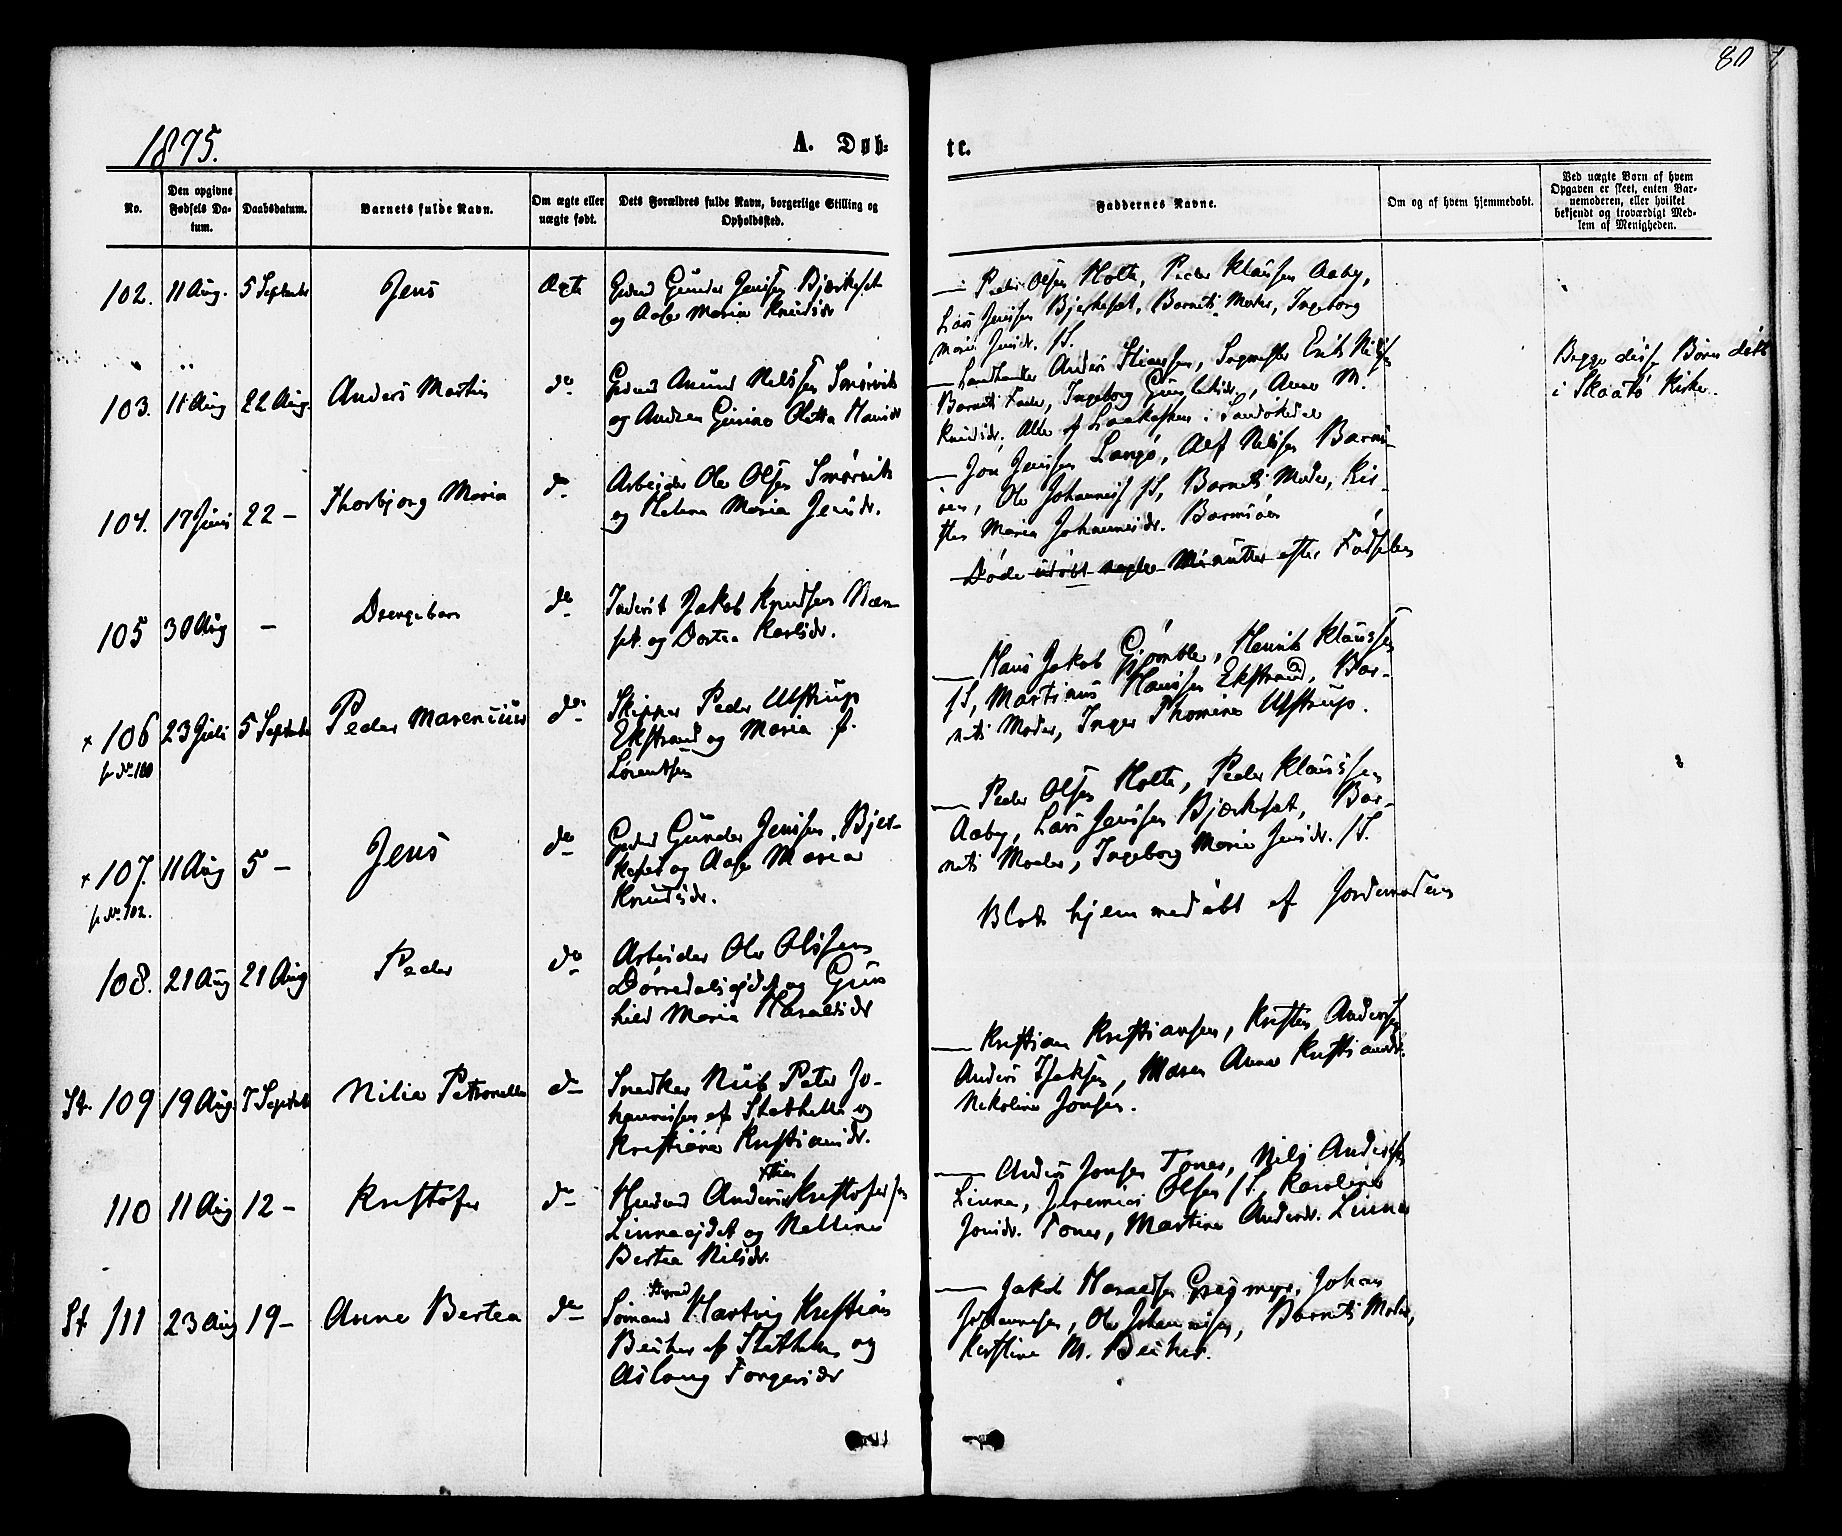 80
1875.
A. Døb-
te.
No.
Den opgivne Fødsels Da-tum.
Daabsdatum.
Barnets fulde Navn.
Om ægte eller uægte født.
Dets Forældres fulde Navn, borgerlige Stilling og Opholdssted.
Faddernes Navne.
Om og af hvem hjemmedøbt.
Ved uægte Born af hvem Opgaven er skeet, enten Bar-nemoderen, eller hvilket bekjendt og troværdigt Med-lem af Menigheden.
102. 11 Aug. 5 September Jens Ægte
Gunder Jenssen Bjærkeset
og Aase Maria Knudsdr
— Peder Olsen Holte, Peder Klausen Aaby,
Lars Jenssen Bjerkeset, Barnets Moder, Ingeborg
Marie Jensdr. ss.
103. 11 Aug 22 Aug. Anders Martin do
Amund Nilssen Smørvik
og Andrea Olette Hansdr
— Landhandler Anders Stianssen, Erik Nilssen
Barnets Fader, Ingeborg, Anne M.
Knudsdr. Alle af i Sandøkedal
Begge disse Børn døbt
i Skaatø Kirke.
104. 17 Juni 22 — Thorbjorg Maria do
Arbeider Ole Olsen Smørvik
og Helene Maria Jensdr.
— Jon Jenssen Langø, Alf Nilssen Barms-
øen, Ole Johannes ss, Barnets Moder, Kir-
sten Maria Johannesdr. Barmsøen
105 30 Aug — Drengebarn do
Jakob Knudsen Næn-
set og Dortea Karlsdr.
Døde udøbt nogle Minutter efter Fødselen
x 106 23 Juli 5 September Peder Marencius do
Skipper Peder Ulstrup
Ekstrand og Maria f.
Lorentsen
— Hans Jakob Gjømble, Henrik Klaussen
ss, Martinus Hanssen Ekstrand, Bar-
nets Moder, Inger Thomine Ulstrup.
x 107. 11 Aug 5 — Jens do
se No. 102.
Gunder Jenssen Bjer-
keset og Aase Maria
Knudsdr.
— Peder Olsen Holte, Peder Klaussen
Aaby, Lars Jenssen Bjærkeset, Bar-
nets Moder, Ingeborg Marie Jensdr. ss.
108. 21 Aug 21 Aug Peder do
Arbeider Ole Olssen
Dørredalsejdet og Gun
hild Maria Haraldsdr
Blot hjemmedøbt af Jordemoderen
St. 109 19 Aug. 7 September Nilia Petronella do
Snedker Nils Peter Jo-
hannessen af Stathelle og
Kristiane Kristiansdr.
— Kristian Kristiansen, Kristen Andersen
Anders Isaksen, Maren Anna Kristiansdr.
Nikoline Jonsen.
110 11 Aug 12 — Kristofer do
Anders Kristofersen
Linnaejdet og Nelline
Bertea Nilsdr.
— Anders Jonsen Toner, Nils Andersen
Linna, Jeremias Olsen ss, Karoline
Jonsdr. Toner, Martine Andersdr. Linna
St 111 23 Aug 19 — Anne Bertea do
Sømand Hartvig Kristian
Beuker af Stathelle og
Aslaug Torgersdr
— Jakob Haraldsen Grasmyr, Johan
Johannesen, Ole Johannesen, Barnets Moder,
Kirstine M. Beuker.